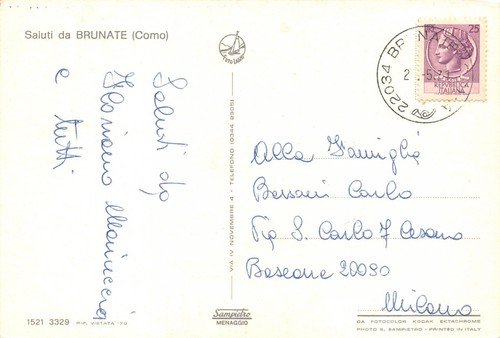 Saluti da BRUNATE (Como)
Saluti da
Floriano Mannuccia
e tutti
VIA IV NOVEMBRE 4 - TELEFONO (0344 89051)
Sampietro
MENAGGIO
1521 3329 RIP. VIETATA
25
REPVBBLICA
ITALIANA
22034 BRUNATE
Alla Famiglia
Bessani Carlo
Via S. Carlo 7 Cesano
Boscone 20090
Milano
DA FOTOCOLOR KODAK EKTACHROME
PHOTO S. SAMPIETRO - PRINTED IN ITALY